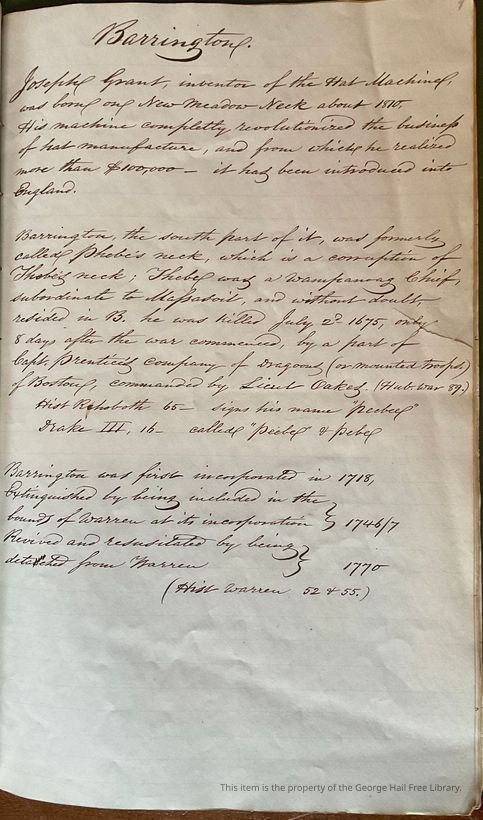 Barrington.
Joseph Grant, inventor of the Hat Machine,
was born on New Meadow Neck about 1810.
His machine completly revolutionized the business
of hat manufacture, and from which he realized
more than $100,000 — it had been introduced into
England.
Barrington, the south part of it, was formerly
called Phebe's neck, which is a corruption of
Thebe's neck; Thebe was a Wampanoag Chief,
subordinate to Massasoit, and without doubt
resided in B. he was killed July 2d 1675, only
8 days after the war commenced, by a part of
Capt. Prentice's company of Dragoons (or mounted troops)
of Boston, commanded by Lieut Oakes. (Hub. war 89.)
Hist Rehoboth 65 — signs his name "peebee"
Drake III, 16 — called "Peebe" & pebe
Barrington was first incorporated in 1718,
Extinguished by being included in the
bounds of Warren at its incorporation } 1746/7
Revived and resusitated by being
detached from Warren } 1770
(Hist Warren 52 & 55.)
This item is the property of the George Hail Free Library.